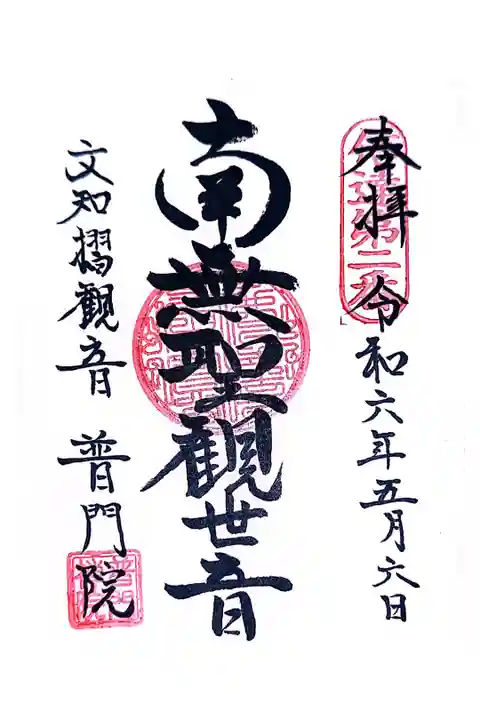 奉拝 令和六年五月六日
伊達第二番
南無聖観世音
文知摺観音 普門院